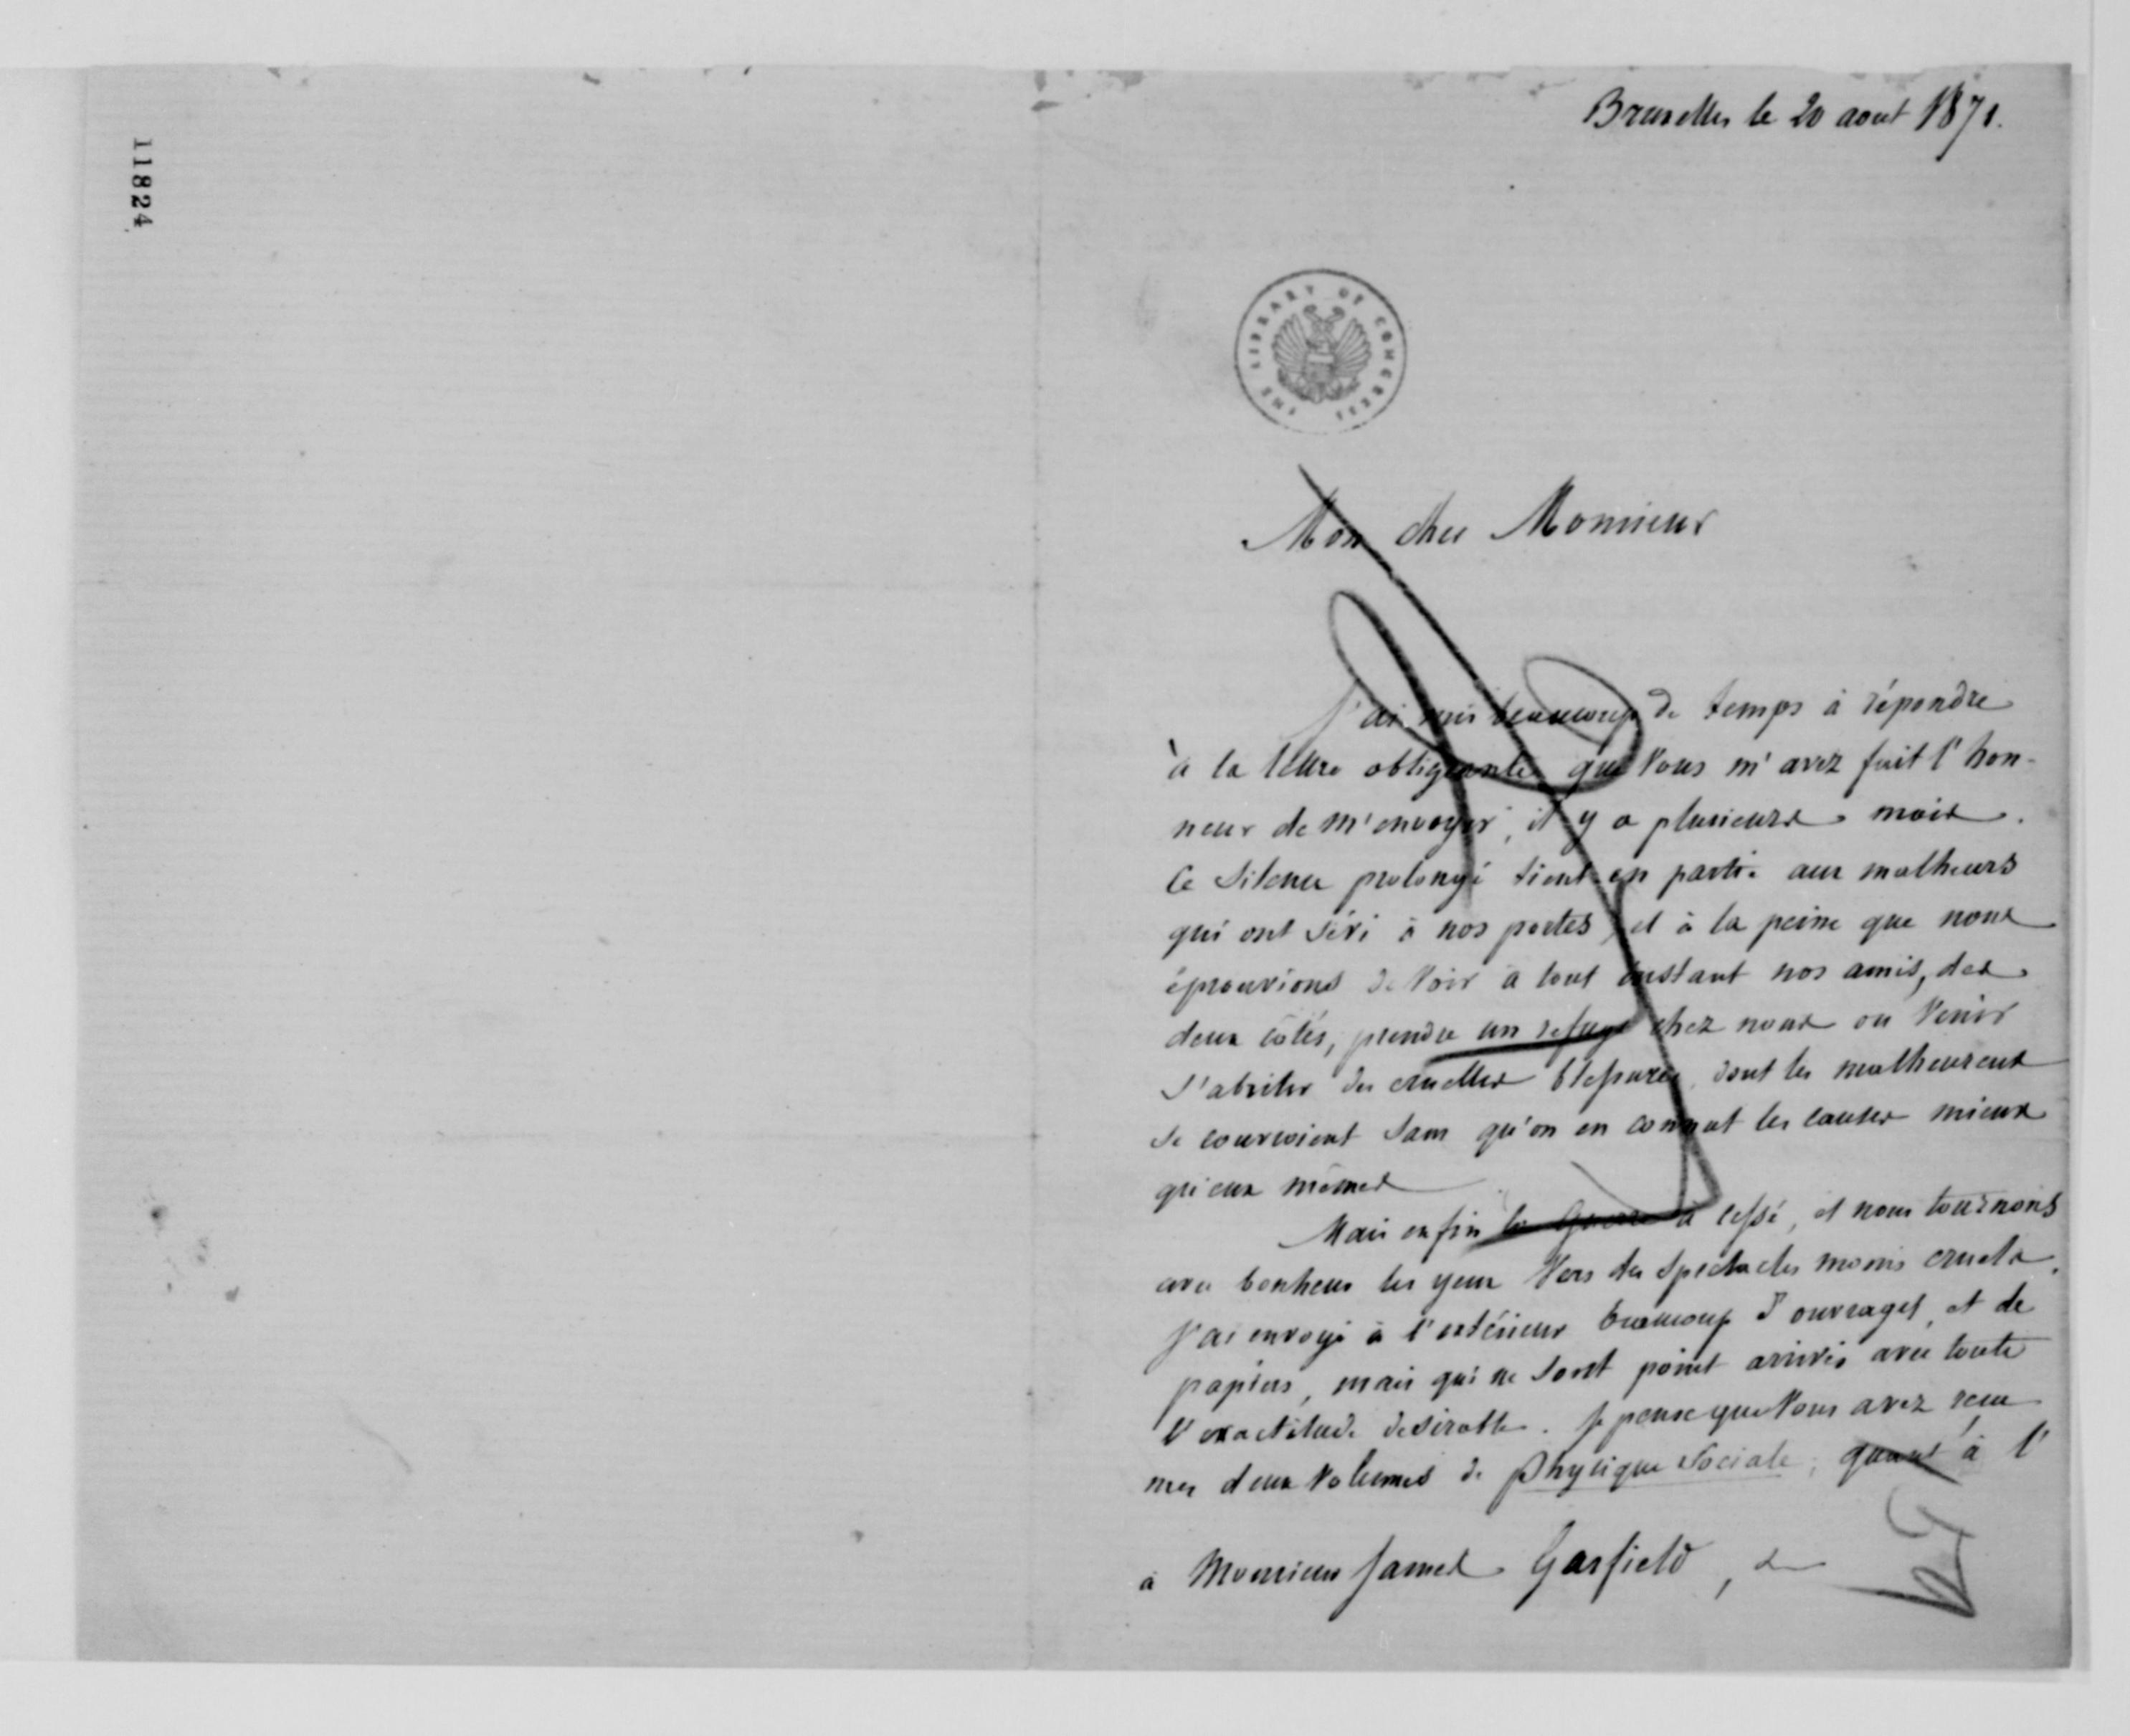 11824
Bruxelles le 20 aout 1871.
THE LIBRARY OF CONGRESS
Mon cher Monsieur
J'ai mis beaucoup de temps à répondre
à la lettre obligeante que vous m'avez fait l'hon-
neur de m'envoyer, il y a plusieurs mois.
Ce silence prolongé tient en partie aux malheurs
qui ont sévi à nos portes et à la peine que nous
éprouvions de voir à tout instant nos amis, des
deux côtés, prendre un refuge chez nous ou venir
s'abriter des cruelles blessures dont les malheureux
se couvroient sans qu'on en connut les causes mieux
qu'eux mêmes
Mais enfin la guerre a cessé, et nous tournons
avec bonheur les yeux vers des spectacles moins cruels.
J'ai envoyé à l'extérieur beaucoup d'ouvrages, et de
papiers, mais qui ne sont point arrivés avec toute
l'exactitude desirable. Je pense que vous avez reçu
mes deux volumes de physique sociale; quant à l'
à Monsieur James Garfield,